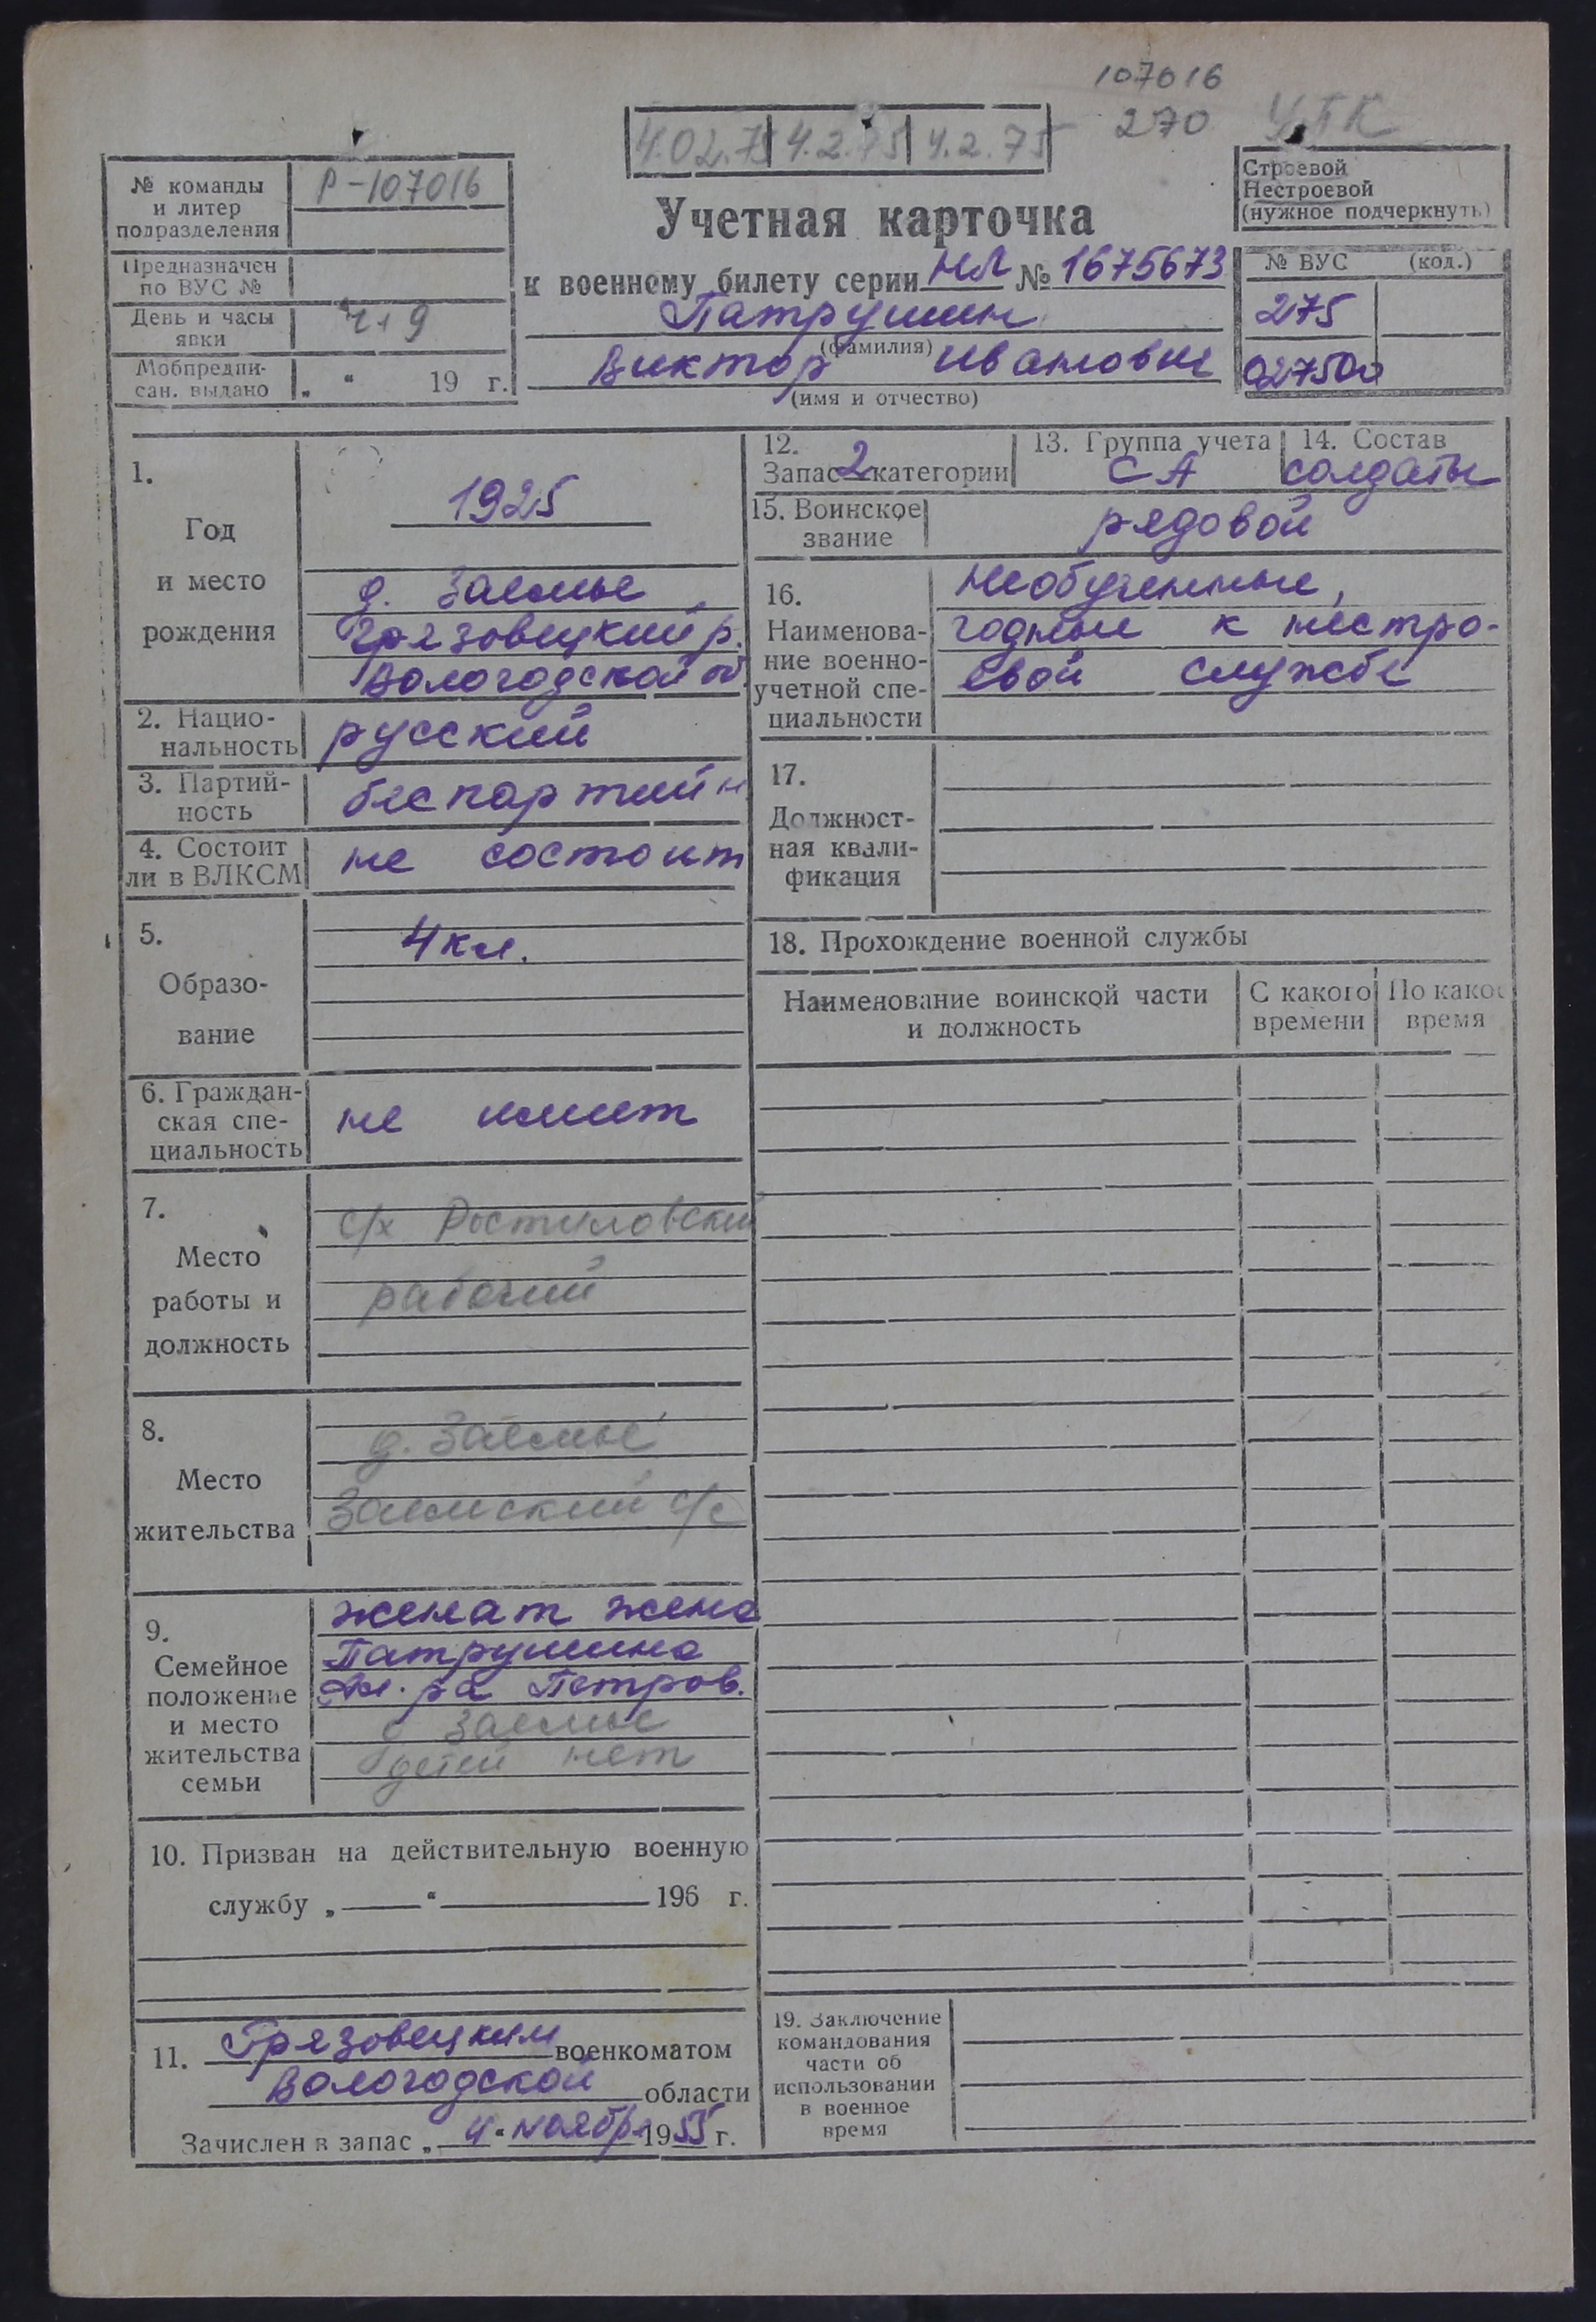 107016
270 УПК
4.02.75 4.2.75 4.2.75
№ команды и литер подразделения
Р-107016
Предназначен по ВУС №
День и часы явки
Ч+9
Мобпредписан. выдано
„ “ 19 г.
Учетная карточка
к военному билету серии НЛ № 1675673
Патрушин
(фамилия)
Виктор Иванович
(имя и отчество)
Строевой
Нестроевой
(нужное подчеркнуть)
№ ВУС (код.)
275
027500
1.
Год
и место
рождения
1925
д. Заемье
Грязовецкий р.
Вологодской об
2. Национальность
русский
3. Партийность
беспартийн
4. Состоит ли в ВЛКСМ
не состоит
5.
Образование
4 кл.
6. Гражданская специальность
не имеет
7.
Место
работы и
должность
с/х Ростиловский
рабочий
8.
Место
жительства
д. Заемье
Заемский с/с
9.
Семейное
положение
и место
жительства
семьи
женат жена
Патрушина
Ал-ра Петров.
д Заемье
детей нет
10. Призван на действительную военную
службу „ “ 196 г.
11. Грязовецким военкоматом
Вологодской области
Зачислен в запас „ 4 “ ноябр 1955 г.
12.
Запас 2 категории
13. Группа учета
СА
14. Состав
солдаты
15. Воинское звание
рядовой
16.
Наименова-
ние военно-
учетной спе-
циальности
Необученные,
годные к нестро-
евой службе
17.
Должност-
ная квали-
фикация
18. Прохождение военной службы
Наименование воинской части
и должность
С какого
времени
По како
время
19. Заключение
командования
части об
использовании
в военное
время